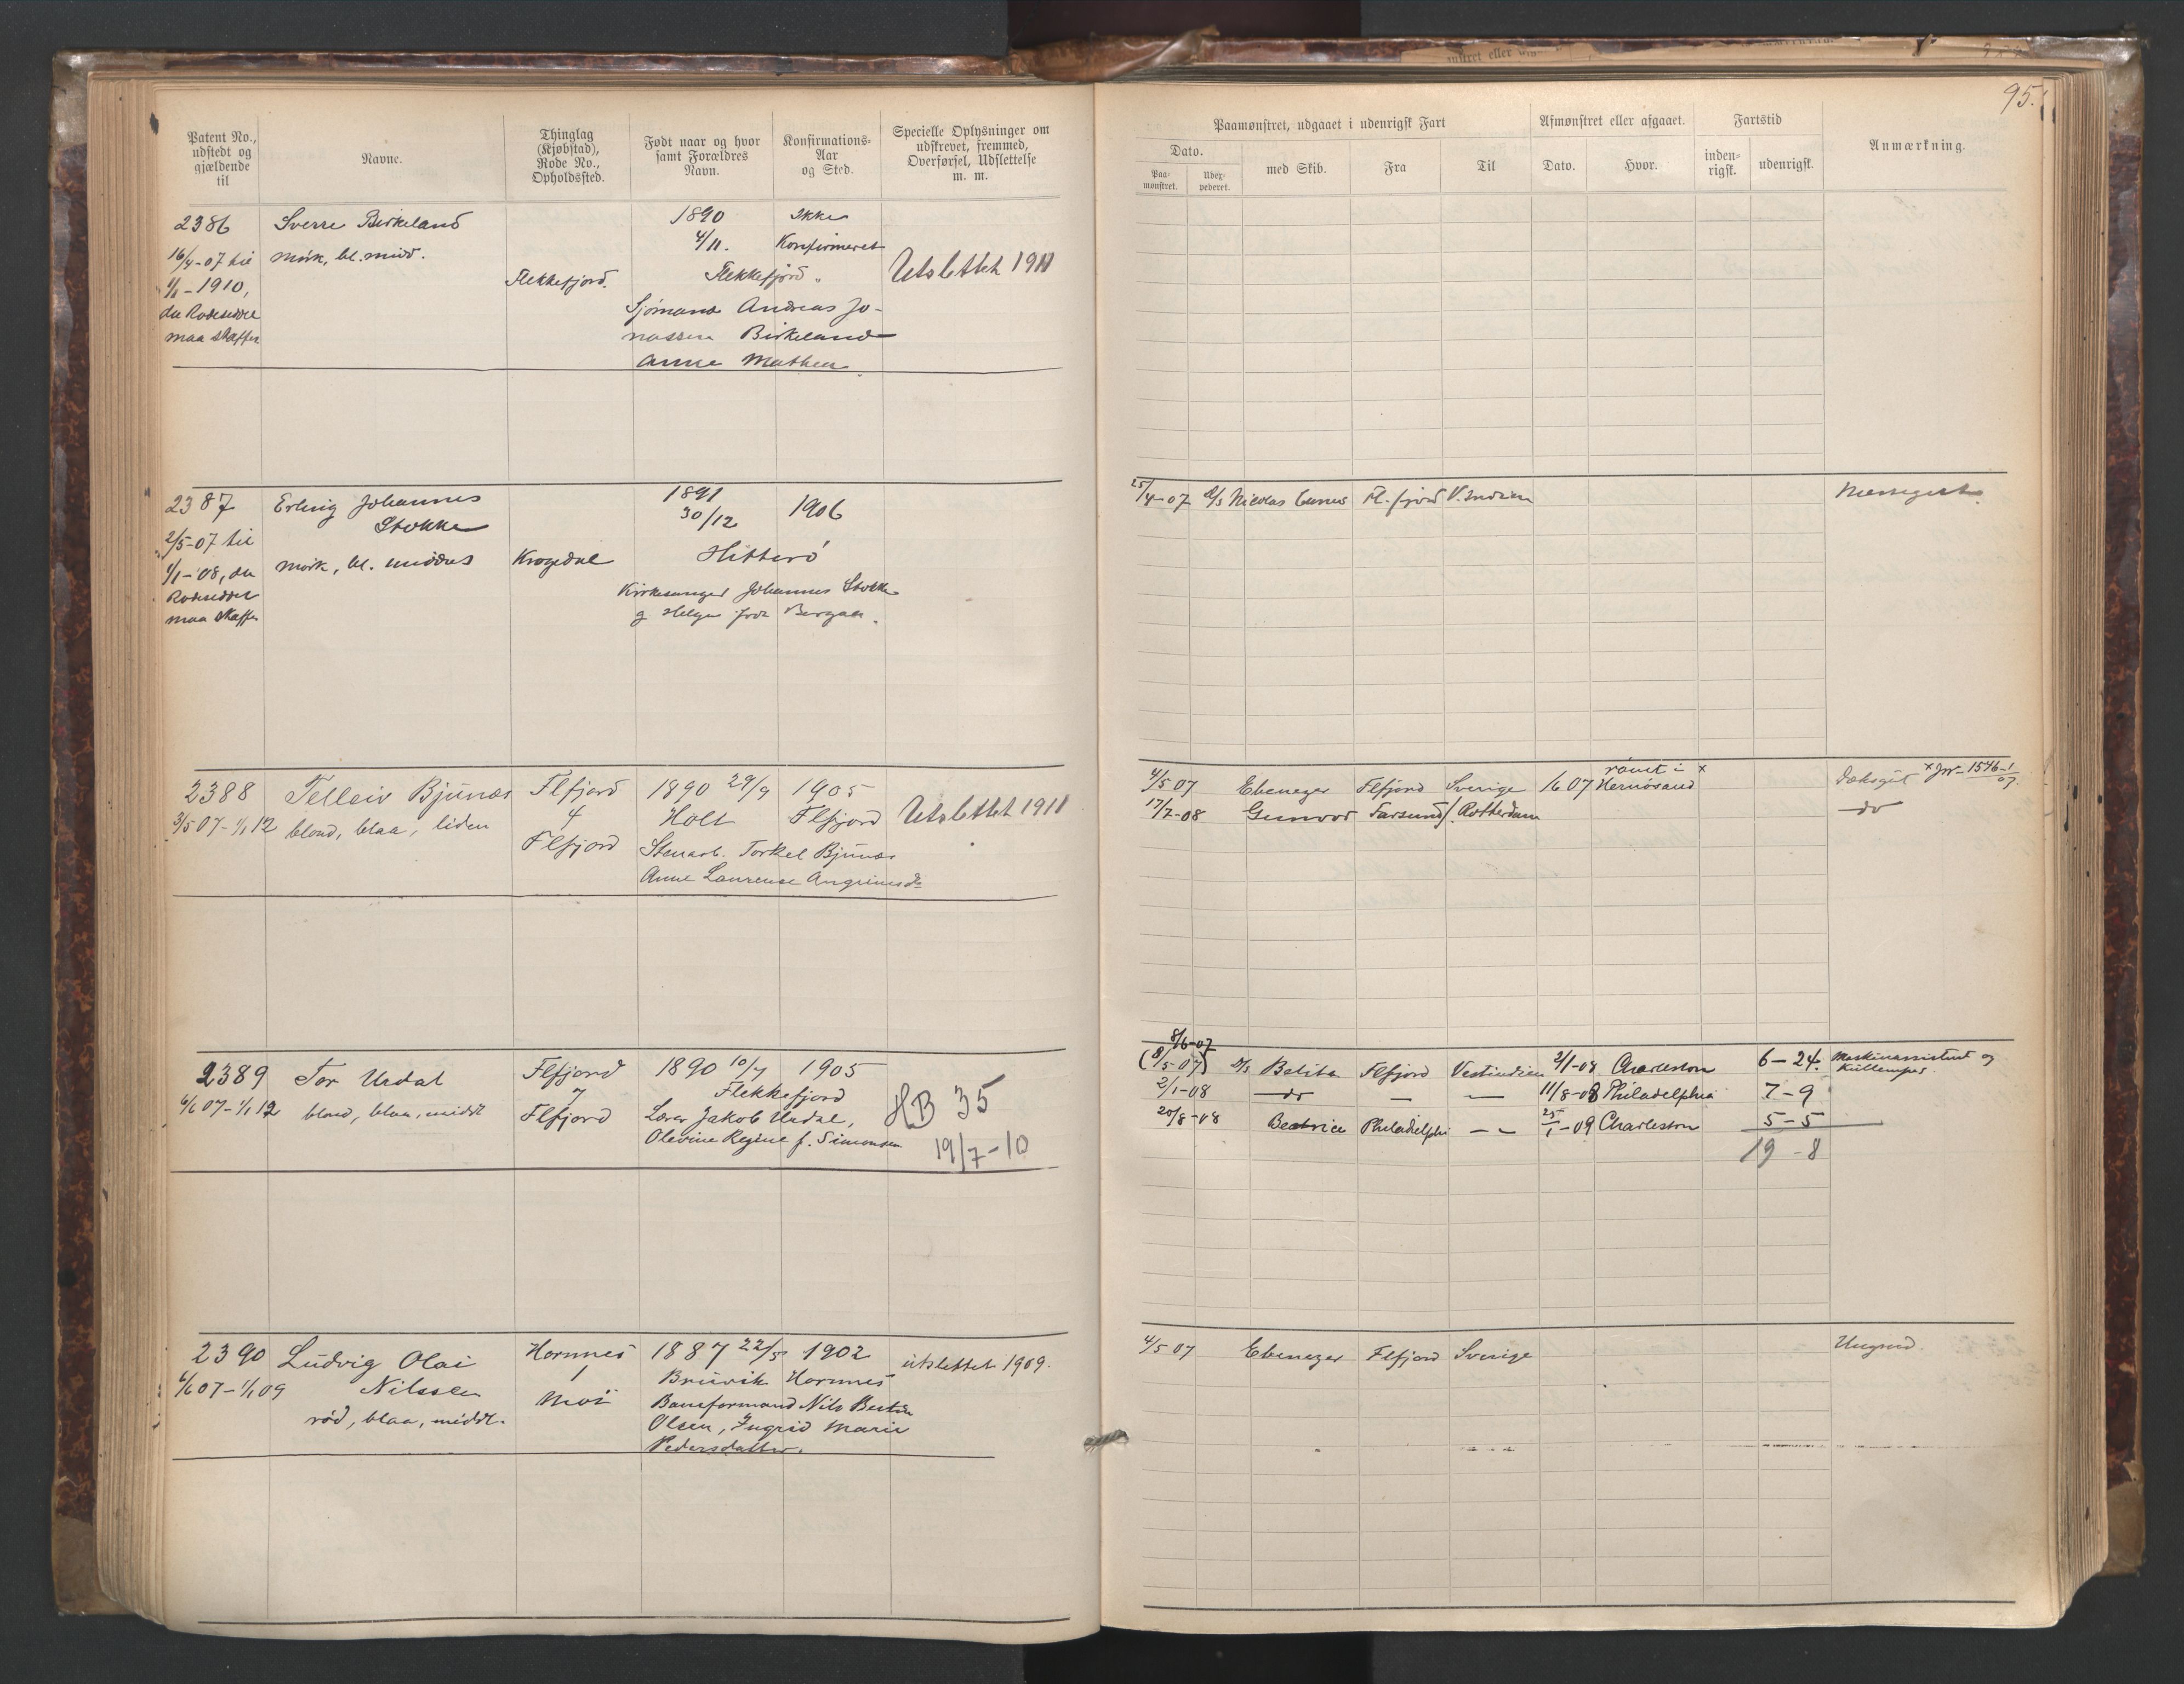 95.
Patent No., udstedt og gjældende til
Navne.
Thinglag (Kjøbstad), Rode No., Opholdssted.
Født naar og hvor samt Forældres Navn.
Konfirmations-Aar og Sted.
Specielle Oplysninger om udskrevet, fremmed, Overførsel, Udslettelse m. m.
Paamønstret, udgaaet i udenrigsk Fart
Afmønstret eller afgaaet.
Fartstid
Anmærkning.
Dato.
Paa-mønstret.
med Skib.
Fra
Til
Dato.
Hvor.
inden-rigsk.
udenrigsk.
2386
Sverre Birkeland
1890
Ikke
16/4-07 til
mörk, bl. mid.
4/11.
Konfirmeret
1/1-1910,
Flekkefjord.
Flekkefjord.
Utslettet 1911
da Rodeseddel
Sjömand Andreas Jo-
maa skaffes
nassen Birkeland
Anne Mathea
2387
Erling Johannes
1891
1906
Stokke
30/12
2/5-07 til
mörk, bl. middels
Krogedal
Hitterö
1/1-08, da
Kirkesanger Johannes Stokke
Rodeseddel
og Helga
maa skaffes
25/4-07
Fl.fjord
V. Indien
Messegut
2388
Telleiv Bjünæs
Flfjord
1890 29/9
1905
3/5 07-1/1 12
blond, blaa, liden
4
Holt
Flfjord
Utslettet 1911
Flfjord
Stenarb. Torkel Bjünæs
Anne Laurense
4/5 07
Ebenezer
Flfjord
Sverige
/6 07
römt i x
Hernösand
Dæksgut
x Jr. 1546-1/07.
17/2-08
Gunvor
Farsund
/. Rotterdam
do
2389
Tor Urdal
Flfjord
1890 10/7
1905
6/6 07-1/1 12
blond, blaa, middl
7
Flekkefjord
HB 35
Flfjord
Lærer Jakob Urdal,
Olevine Regine f. Simonsen
19/7-10
8/6-07
(8/5 07)
D/S
Belita
Flfjord
Vestindien
2/1-08
Charleston
6-24.
Maskinassistent og
Kullemper
2/1-08
do
—
—
11/8-08
Philadelphia
7-9
20/8-08
Beatrice
Philadelphi
—
25/1-09
Charleston
5-5
19-8
2390
Ludvig Olai
Hornnes
1887 22/5
1902
utslettet 1909.
6/6 07-1/1 09
Nilssen
1
Hornnes
röd, blaa, middl.
Moi
Baneformand Nils
Olsen, Ingrid Marie
Pedersdatter.
4/5 07
Ebenezer
Flfjord
Sverige
Ungmd.